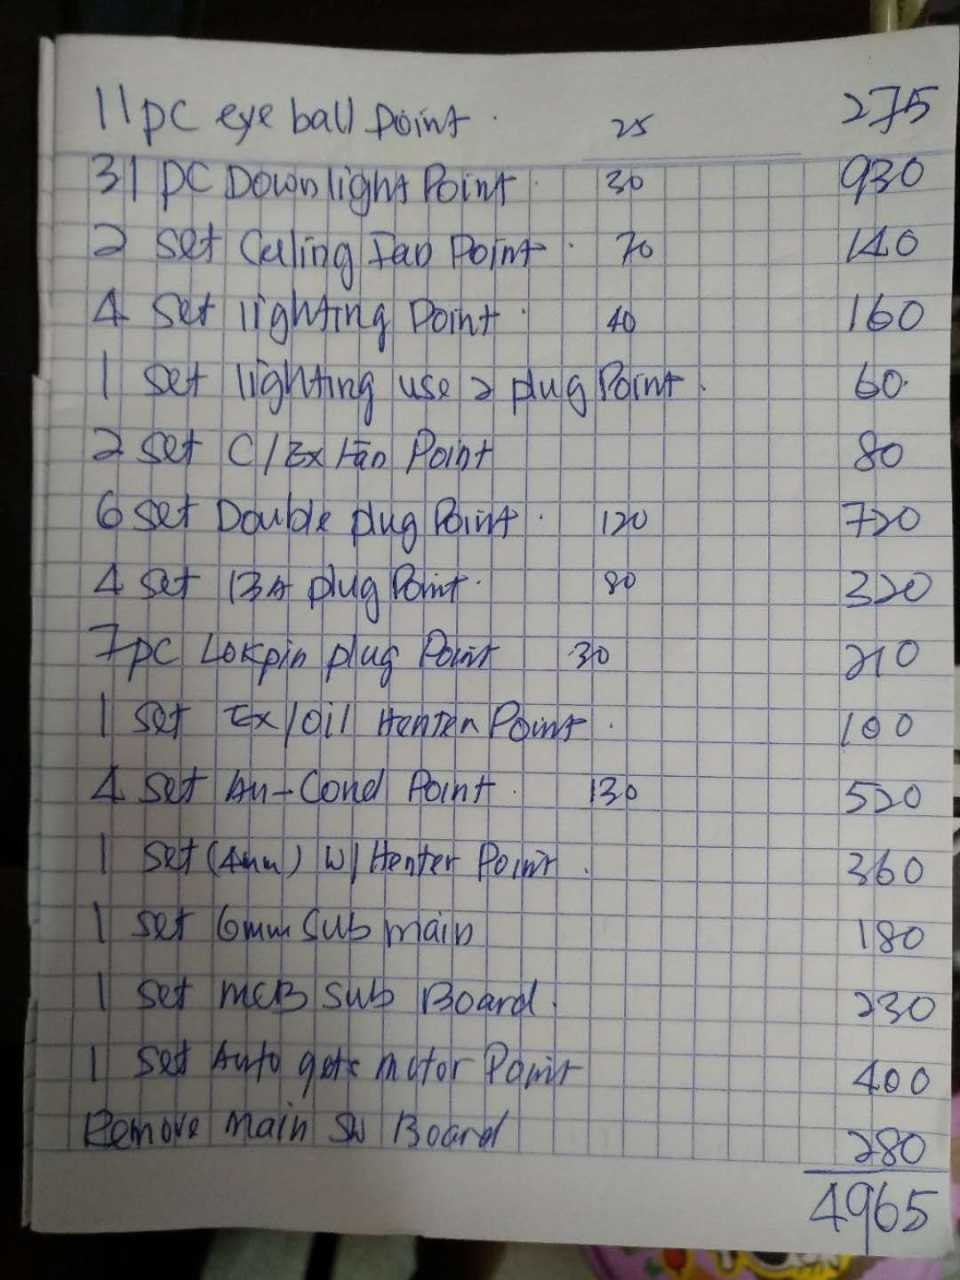 11 pc eye ball point. 25 275
31 pc Down light Point. 30 930
2 set Ceiling Fan Point. 70 140
4 set lighting Point. 40 160
1 set lighting use 2 plug Point. 60.
2 set C/Ex Fan Point 80
6 set Double plug Point. 120 720
4 set 13A plug Point. 80 320
7 pc Lokpin plug Point 30 210
1 set Ex/oil Henter Point. 100
4 set Air-Cond Point. 130 520
1 set (4mm) W/Henter Point. 360
1 set 6mm sub main 180
1 set MCB sub Board. 230
1 set Auto gate motor Point 400
Remove main SW Board 280
4965